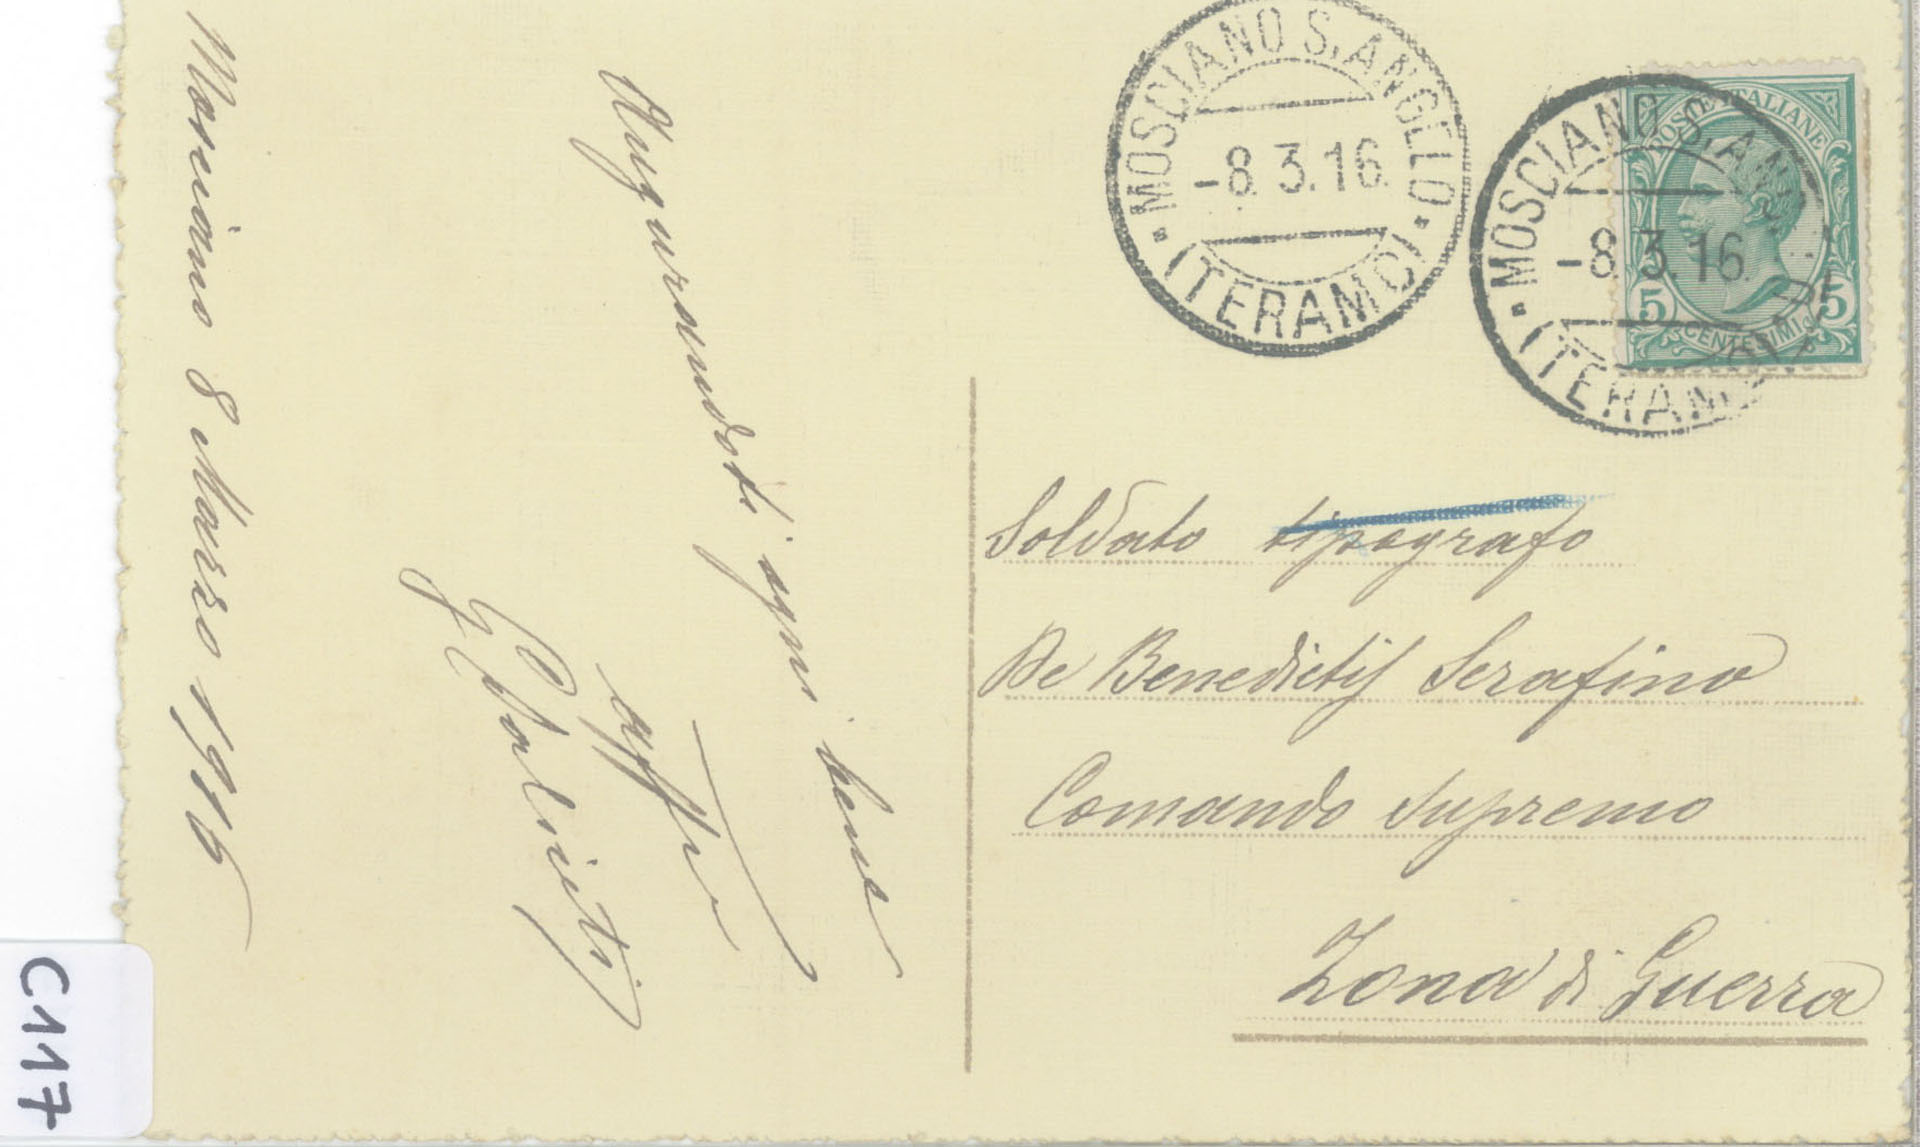 Mosciano 8 Marzo 1916
Augurandoti ogni bene
aff.mo
MOSCIANO S. ANGELO
-8.3.16.
(TERAMO)
MOSCIANO S. ANGELO
-8.3.16.
(TERAMO)
POSTE ITALIANE
5 5
CENTESIMI
Soldato tipografo
De Benedictis Serafino
Comando Supremo
Zona di Guerra
C117